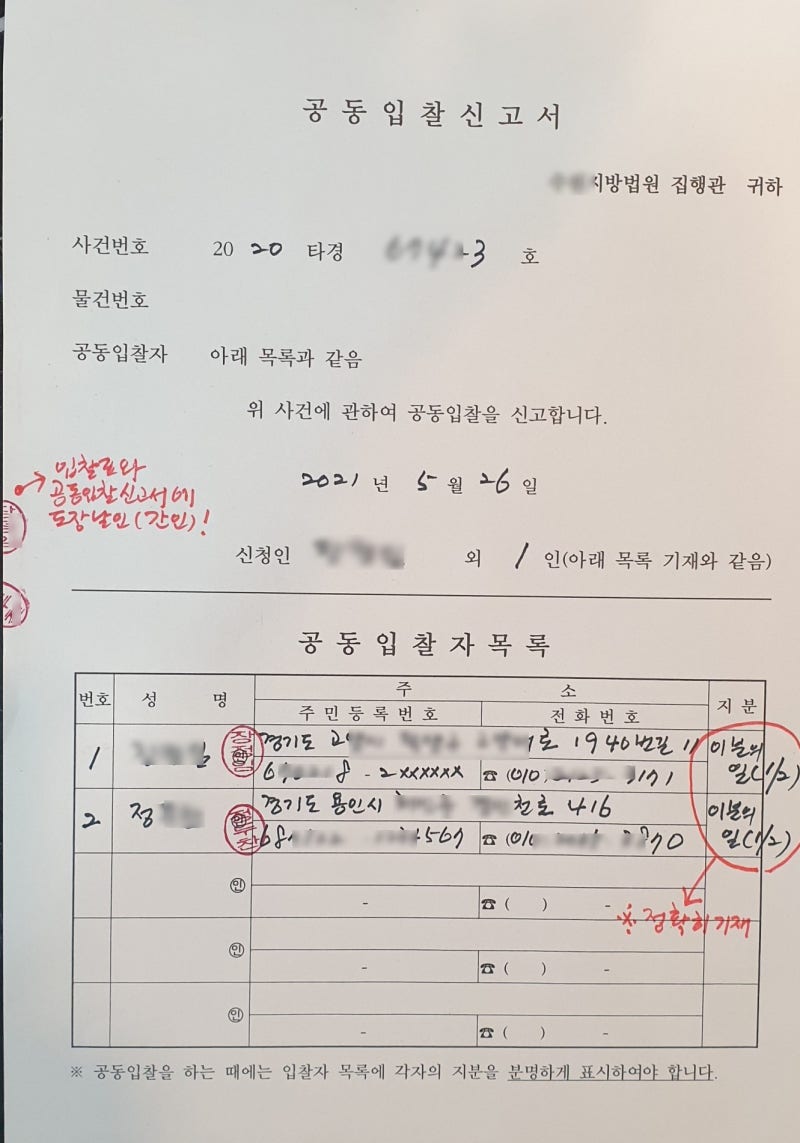 공동입찰신고서
지방법원 집행관 귀하
사건번호 20 20 타경 3 호
물건번호
공동입찰자 아래 목록과 같음
위 사건에 관하여 공동입찰을 신고합니다.
입찰표와
공동입찰신고서에
도장날인(간인)!
2021 년 5 월 26 일
신청인 외 1 인(아래 목록 기재와 같음)
공동입찰자목록
번호 성 명 주 소 지분
주민등록번호 전화번호
1 인 경기도 고 로 1940번길 11 이분의
일(1/2)
6 8 - 2xxxxxx ☎ (010 171
2 정 인 경기도 용인시 천로 416 이분의
일(1/2)
68 4567 ☎ (010 70
인 - ☎ ( ) -
※ 정확히 기재
인 - ☎ ( ) -
인 - ☎ ( ) -
※ 공동입찰을 하는 때에는 입찰자 목록에 각자의 지분을 분명하게 표시하여야 합니다.